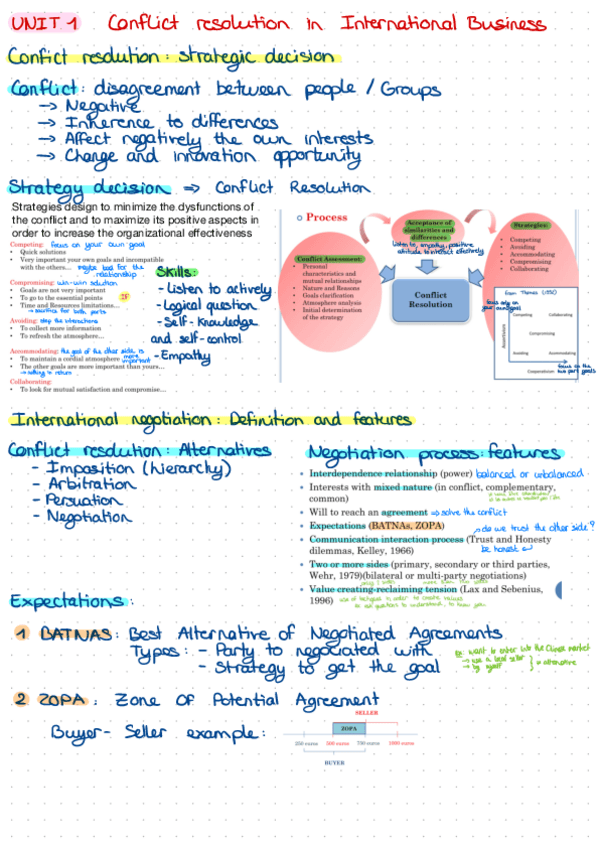 UNIT 1 Conflict resolution in International Business
Confict resolution: strategic decision
Conflict: disagreement between people / Groups
→ Negative
→ Inherence to differences
→ Affect negatively the own interests
→ Change and innovation opportunity
Strategy decision ⇒ Conflict Resolution
Strategies design to minimize the dysfunctions of
the conflict and to maximize its positive aspects in
order to increase the organizational effectiveness
Competing: focus on your own goal
• Quick solutions
• Very important your own goals and incompatible
with the others... maybe bad for the
relationship
Compromising: win-win solution
• Goals are not very important
• To go to the essential points
• Time and Resources limitations...
→ sacrifice for both parts
Avoiding: stop the interactions
• To collect more information
• To refresh the atmosphere...
Accommodating: the goal of the other side is
more important
• To maintain a cordial atmosphere
• The other goals are more important than yours...
→ nothing in return
Collaborating:
• To look for mutual satisfaction and compromise...
Skills:
- Listen to actively
- Logical question
- Self-knowledge
and self-control
- Empathy
Process
Conflict Assessment:
• Personal
characteristics and
mutual relationships
• Nature and Reasons
• Goals clarification
• Atmosphere analysis
• Initial determination
of the strategy
Acceptance of
similarities and
differences
Listen to, empathy, positive
attitude to interact effectively
Conflict
Resolution
Strategies:
• Competing
• Avoiding
• Accommodating
• Compromising
• Collaborating
from Thomas
focus only on
your own goal
Competing Collaborating
Compromising
Avoiding Accommodating
Assertiveness
Cooperativeness
focus on the
two part goals
International negotiation: Definition and features
Conflict resolution: Alternatives
- Imposition (hierarchy)
- Arbitration
- Persuation
- Negotiation
Negotiation process: features
• Interdependence relationship (power) balanced or unbalanced
• Interests with mixed nature (in conflict, complementary,
common)
• Will to reach an agreement ⇒ solve the conflict
• Expectations (BATNAs, ZOPA)
do we trust the other side?
• Communication interaction process (Trust and Honesty
dilemmas, Kelley, 1966) be honest
• Two or more sides (primary, secondary or third parties,
Wehr, 1979)(bilateral or multi-party negotiations)
• Value creating-reclaiming tension (Lax and Sebenius,
1996)
Expectations:
1 BATNAS: Best Alternative of Negotiated Agreements
Types: - Party to negotiated with
- Strategy to get the goal
ex: want to enter into the Chinese market
→ use a local seller
→ by yourself
= alternative
2 ZOPA: Zone OF Potential Agreement
Buyer - Seller example:
SELLER
ZOPA
250 euros 500 euros 700 euros 1000 euros
BUYER